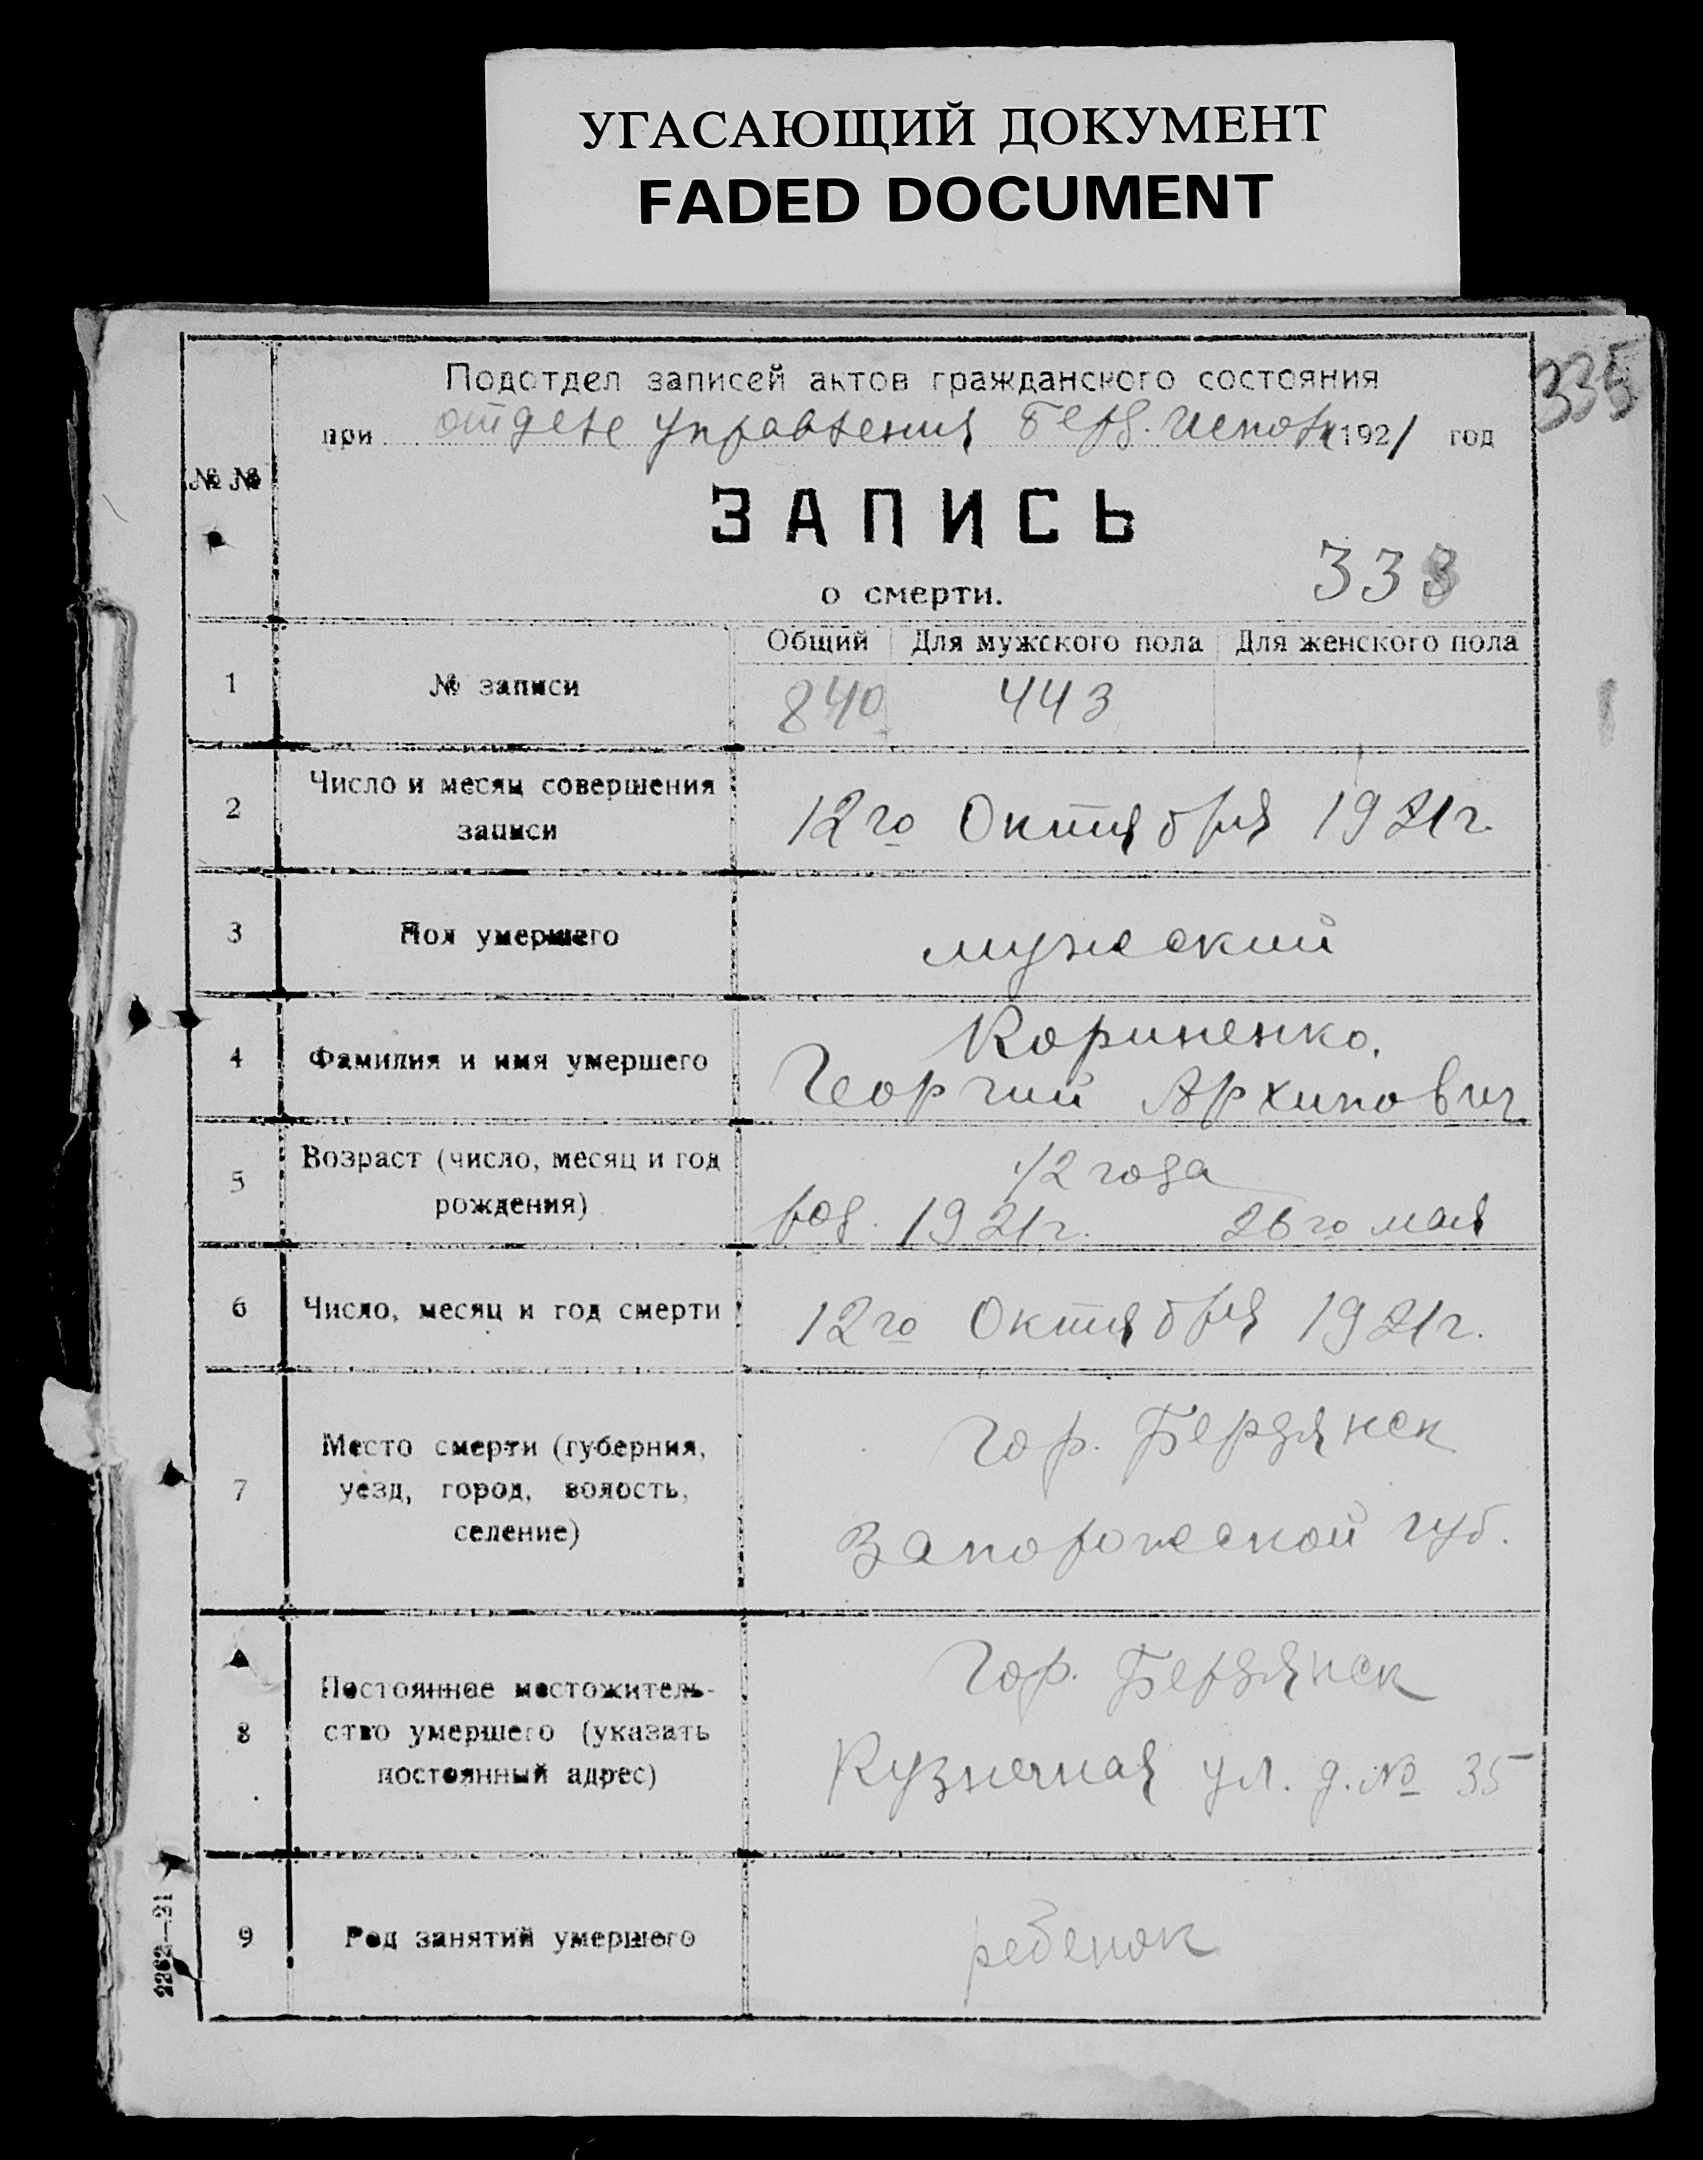 УГАСАЮЩИЙ ДОКУМЕНТ
FADED DOCUMENT
335
Подотдел записей актов гражданского состояния
при отделе управления Берд. Исполк 1921 год
№ №
ЗАПИСЬ
о смерти.
333
Общий Для мужского пола Для женского пола
1 № записи 840 443
2 Число и месяц совершения записи 12го Октября 1921г.
3 Пол умершего мужеский
4 Фамилия и имя умершего Кориненко.
Георгий Архипович
5 Возраст (число, месяц и год рождения) 1/2 года
род. 1921г. 26го мая
6 Число, месяц и год смерти 12го Октября 1921г.
7 Место смерти (губерния, уезд, город, волость, селение) гор. Бердянск
Запорожеской губ.
8 Постоянное местожитель-
ство умершего (указать
постоянный адрес) Гор. Бердянск
Кузнечная ул. д. № 35
9 Род занятий умершего ребенок
2263—21